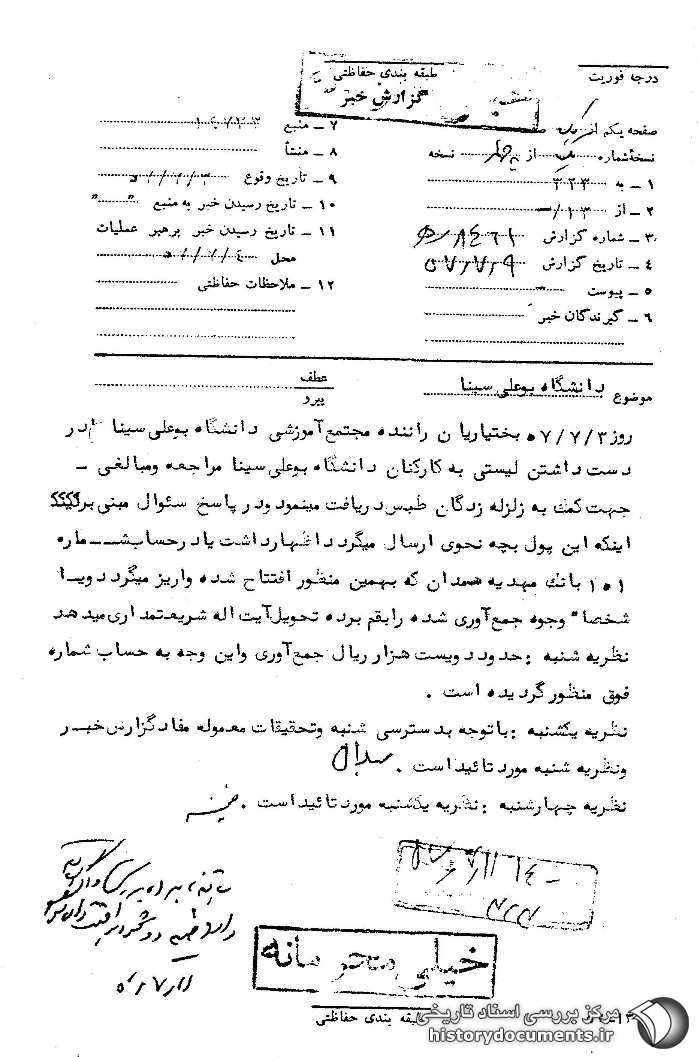 درجه فوریت
طبقه بندی حفاظتی
گزارش خبر
صفحه یکم از یک صفحه
نسخه شماره یک از چهار نسخه
۱ ـ به ۳۲۳
۲ ـ از
۳ ـ شماره گزارش
۴ ـ تاریخ گزارش ۵۷٫۷٫۹
۵ ـ پیوست
۶ ـ گیرندگان خبر
۷ ـ منبع
۸ ـ منشأ
۹ ـ تاریخ وقوع ۵۷/۷/۳
۱۰ ـ تاریخ رسیدن خبر به منبع " "
۱۱ ـ تاریخ رسیدن خبر برهبر عملیات
محل ۵۷/۷/٤
۱۲ ـ ملاحظات حفاظتی
موضوع دانشگاه بوعلی سینا
عطف
پیرو
روز ۵۷/۷/۳ بختیاریان راننده مجتمع آموزشی دانشگاه بوعلی سینا در
دست داشتن لیستی به کارکنان دانشگاه بوعلی سینا مراجعه ومبالغی ـ
جهت کمک به زلزله زدگان طبس دریافت مینمود ودر پاسخ سئوال مبنی بر
اینکه این پول بچه نحوی ارسال میگردد اظهارداشت یا درحساب شـــماره
۱۰۱ بانک مهدیه همدان که بهمین منظور افتتاح شده واریز میگردد ویا
شخصا" وجوه جمع آوری شده را بقم برده تحویل آیت اله شریعتمداری میدهد
نظریه شنبه : حدود دویست هزار ریال جمع آوری واین وجه به حساب شماره
فوق منظور گردیده است .
نظریه یکشنبه : با توجه بدسترسی شنبه وتحقیقات معموله مفاد گزارش خبر
ونظریه شنبه مورد تائید است .
نظریه چهارشنبه : نظریه یکشنبه مورد تائید است .
خیلی محرمانه
طبقه بندی حفاظتی
مرکز بررسی اسناد تاریخی
historydocuments.ir